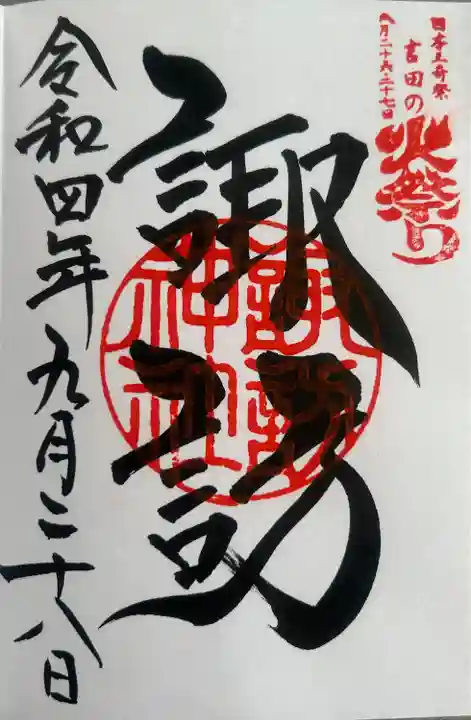 日本三奇祭
吉田の
火祭り
八月二十六・二十七日
諏訪
諏訪
神社
令和四年九月二十八日